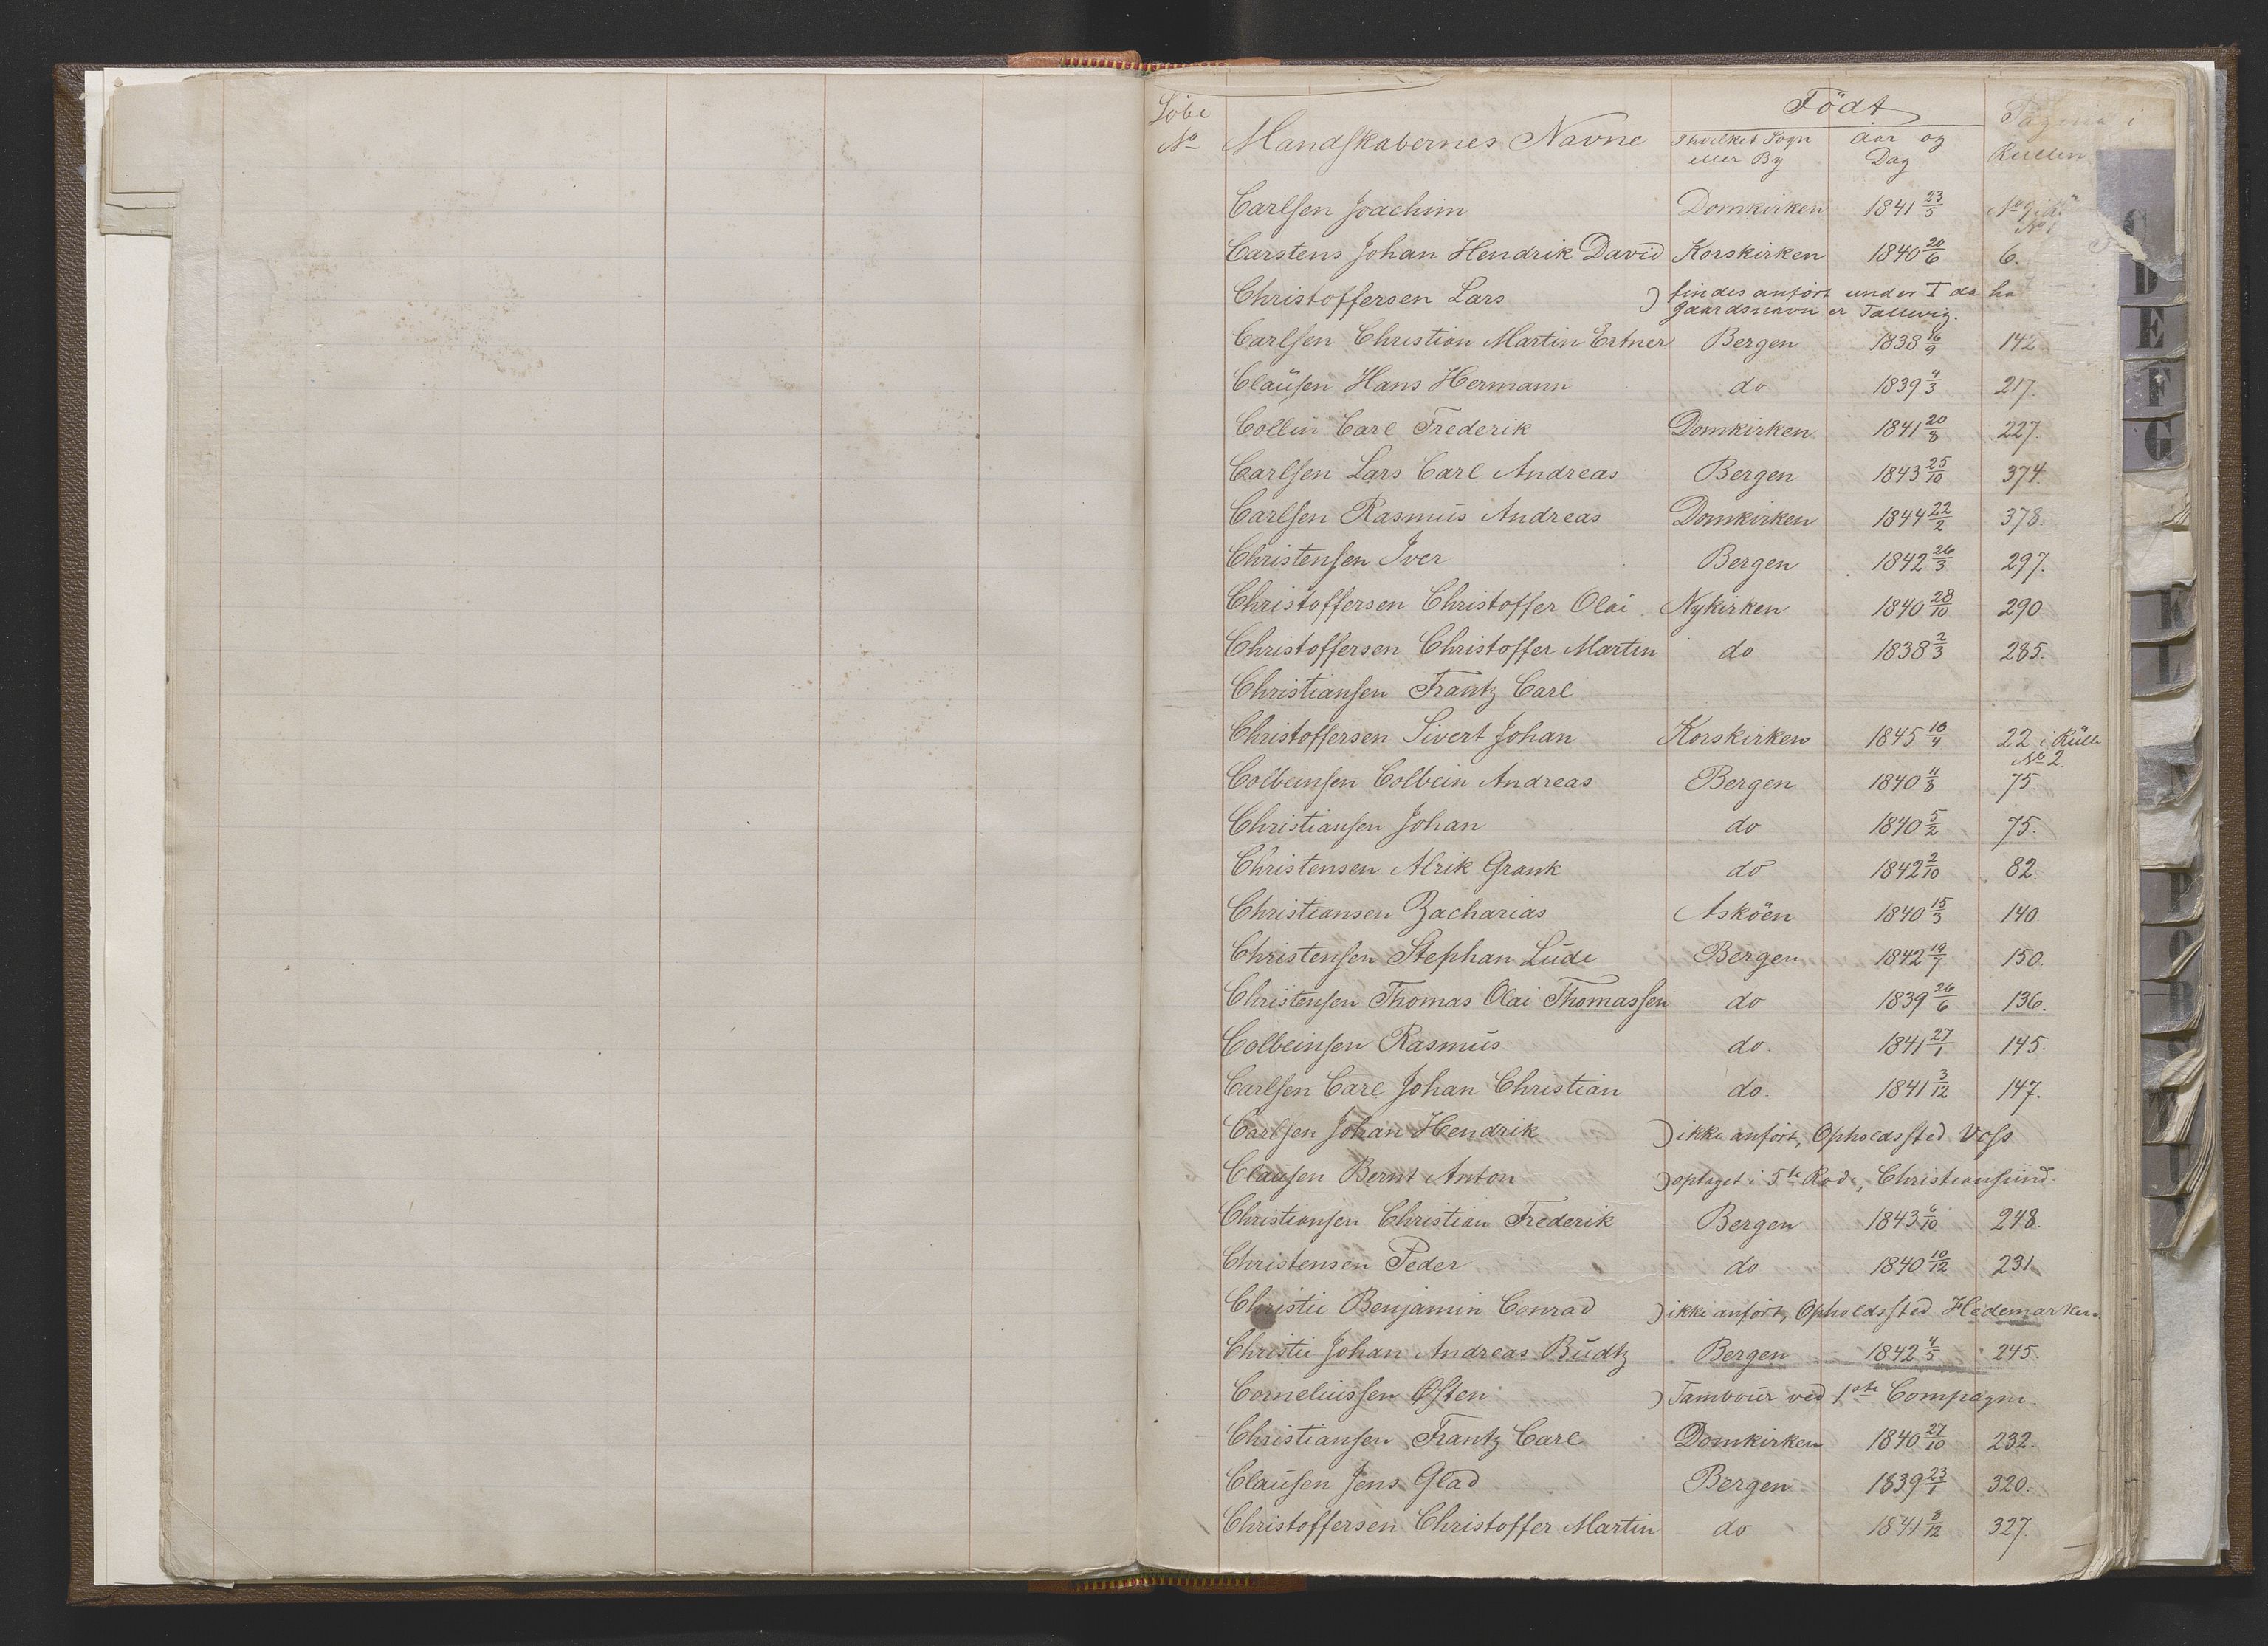 Löbe
No
Mandskabernes Navne
Födt
I hvilket Sogn
eller By
Aar og
Dag
Pagina i
Rullen
Carlsen Joachim Domkirken 1841 23/5
No 1
Carstens Johan Hendrik David Korskirken 1840 20/6 6.
Christoffersen Lars ) findes anfört under T da ha
Gaardsnavn er Tallevig.
Carlsen Christian Martin Ertner Bergen 1838 16/9 142.
Claüsen Hans Hermann do 1839 4/3 217.
Collin Carl Frederik Domkirken 1841 20/8 227.
Carlsen Lars Carl Andreas Bergen 1843 25/10 374.
Carlsen Rasmüs Andreas Domkirken 1844 22/2 378.
Christensen Iver Bergen 1842 26/3 297.
Christoffersen Christoffer Olai Nykirken 1840 28/10 290
Christoffersen Christoffer Martin do 1838 2/3 285.
Christiansen Frantz Carl
Christoffersen Sivert Johan Korskirken 1845 10/4 22 i Rülle
No 2.
Colbeinsen Colbein Andreas Bergen 1840 11/8 75.
Christiansen Johan do 1840 5/2 75.
Christensen Alrik Grank do 1842 2/10 82.
Christiansen Zacharias Asköen 1840 15/3 140
Christensen Stephan Lüde Bergen 1842 19/7 150.
Christensen Thomas Olai Thomassen do 1839 26/6 136.
Colbeinsen Rasmüs do. 1841 27/1 145.
Carlsen Carl Johan Christian do. 1841 3/12 147.
Carlsen Johan Hendrik ) ikke anfört, Opholdssted Voss
Claüsen Bernt Anton ) optaget i 5te Rode, Christiansünd.
Christiansen Christian Frederik Bergen 1843 6/10 248.
Christensen Peder do 1840 10/12 231
Christie Benjamin Conrad ) ikke anfört, Opholdssted Hedemarken.
Christie Johan Andreas Büdtz Bergen 1842 4/5 245.
Corneliussen Østen ) Tambour ved 1ste Compagni.
Christiansen Frantz Carl Domkirken 1840 27/10 232.
Claüsen Jens Glad Bergen 1839 23/1 320.
Christoffersen Christoffer Martin do 1841 8/12 327.
C
D
E
F
G
K
L
N
P